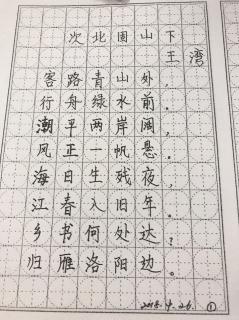 次北固山下
王湾
客路青山外，
行舟绿水前。
潮平两岸阔，
风正一帆悬。
海日生残夜，
江春入旧年。
乡书何处达？
归雁洛阳边。
2018.4.26. ①